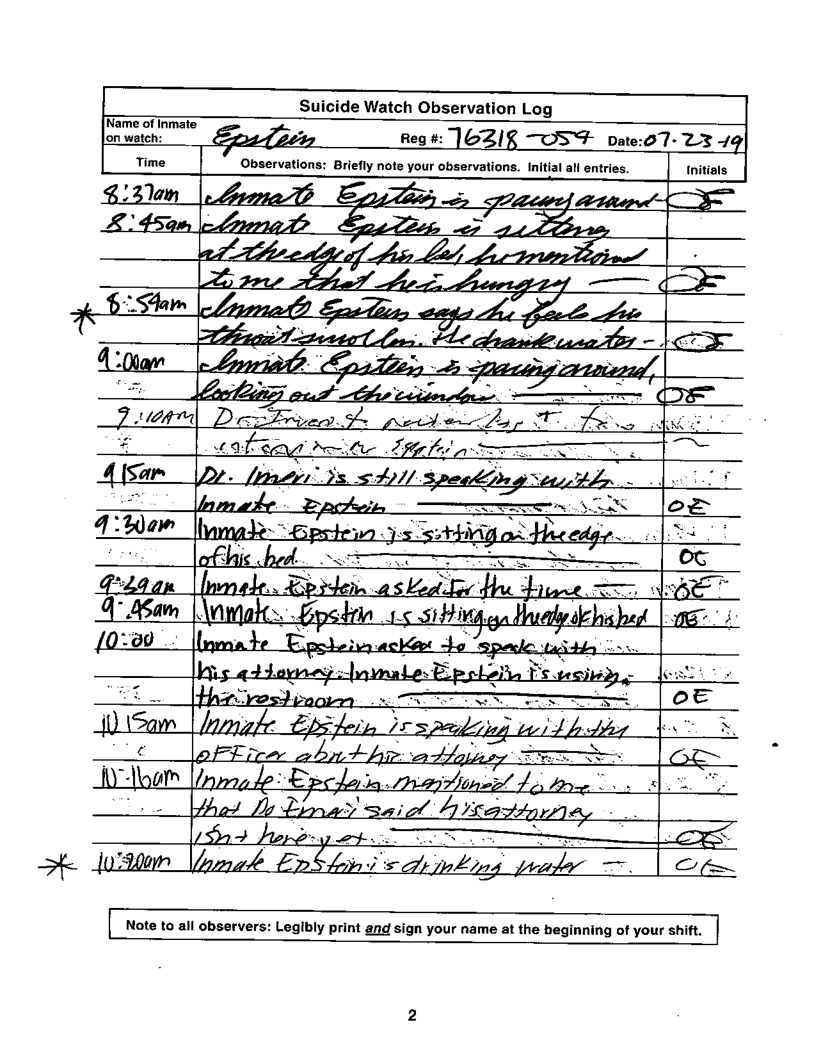 Suicide Watch Observation Log
Name of Inmate on watch: Epstein Reg #: 76318-054 Date: 07-23-19
Time Observations: Briefly note your observations. Initial all entries. Initials
8:37am Inmate Epstein is pacing around OE
8:45am Inmate Epstein is sitting
at the edge of his bed, he mentioned
to me that he is hungry — OE
* 8:54am Inmate Epstein says he feels his
throat swollen. He drank water - OE
9:00am Inmate Epstein is pacing around,
looking out the window — OE
9:10AM
Epstein
9 15am Dr. Imeri is still speaking with
Inmate Epstein — OE
9:30am Inmate Epstein is sitting on the edge
of his bed — OE
9:39am Inmate Epstein asked for the time — OE
9:45am Inmate Epstein is sitting on the edge of his bed OE
10:00 Inmate Epstein asked to speak with
his attorney. Inmate Epstein is using
the restroom — OE
10 15am Inmate Epstein is speaking with the
officer about his attorney — OE
10:16am Inmate Epstein mentioned to me
that said his attorney
isn't here yet — OE
* 10:20am Inmate Epstein is drinking water — OE
Note to all observers: Legibly print and sign your name at the beginning of your shift.
2